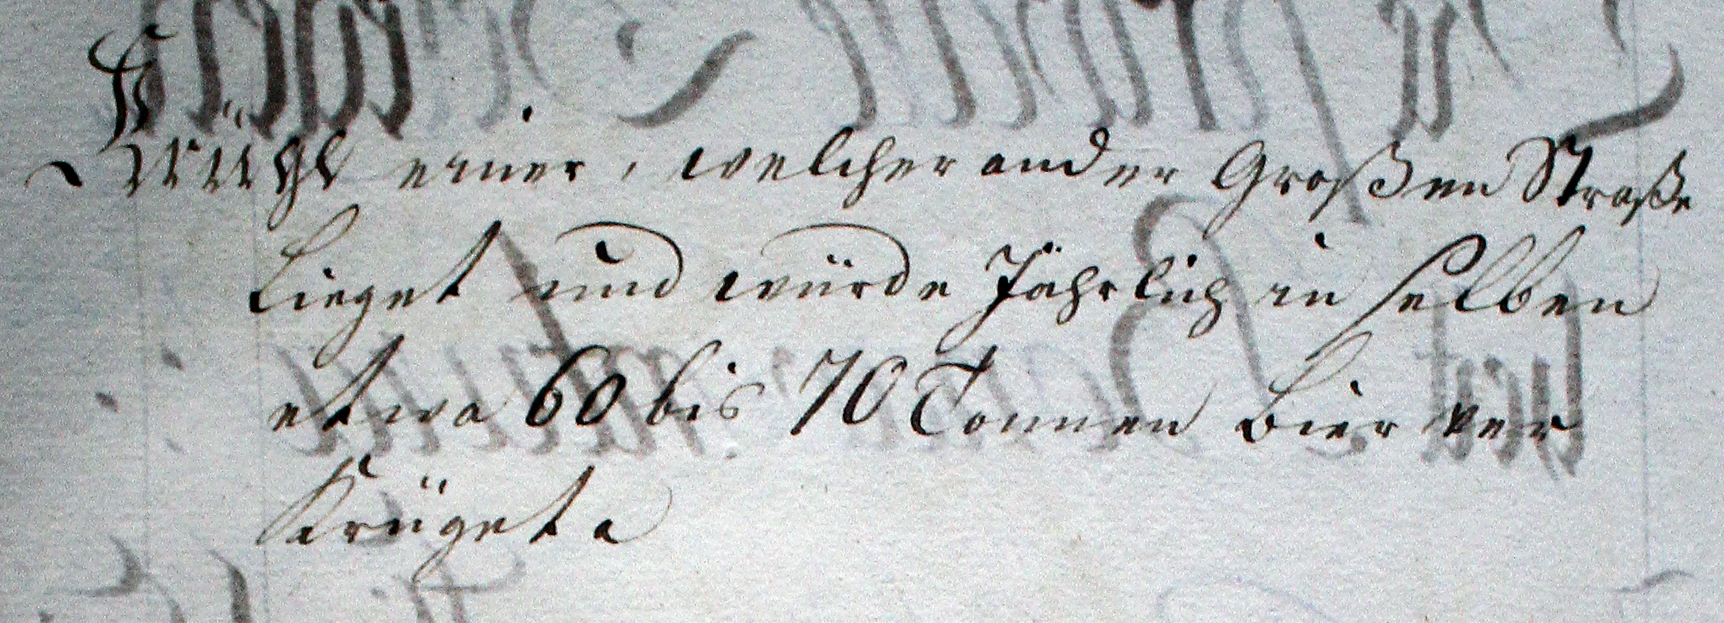 Krüge einer, welcher an der Großen Straße
Lieget und würde Jährlich in selben
etwa 60 bis 70 Tonnen Bier ver
Krüget.